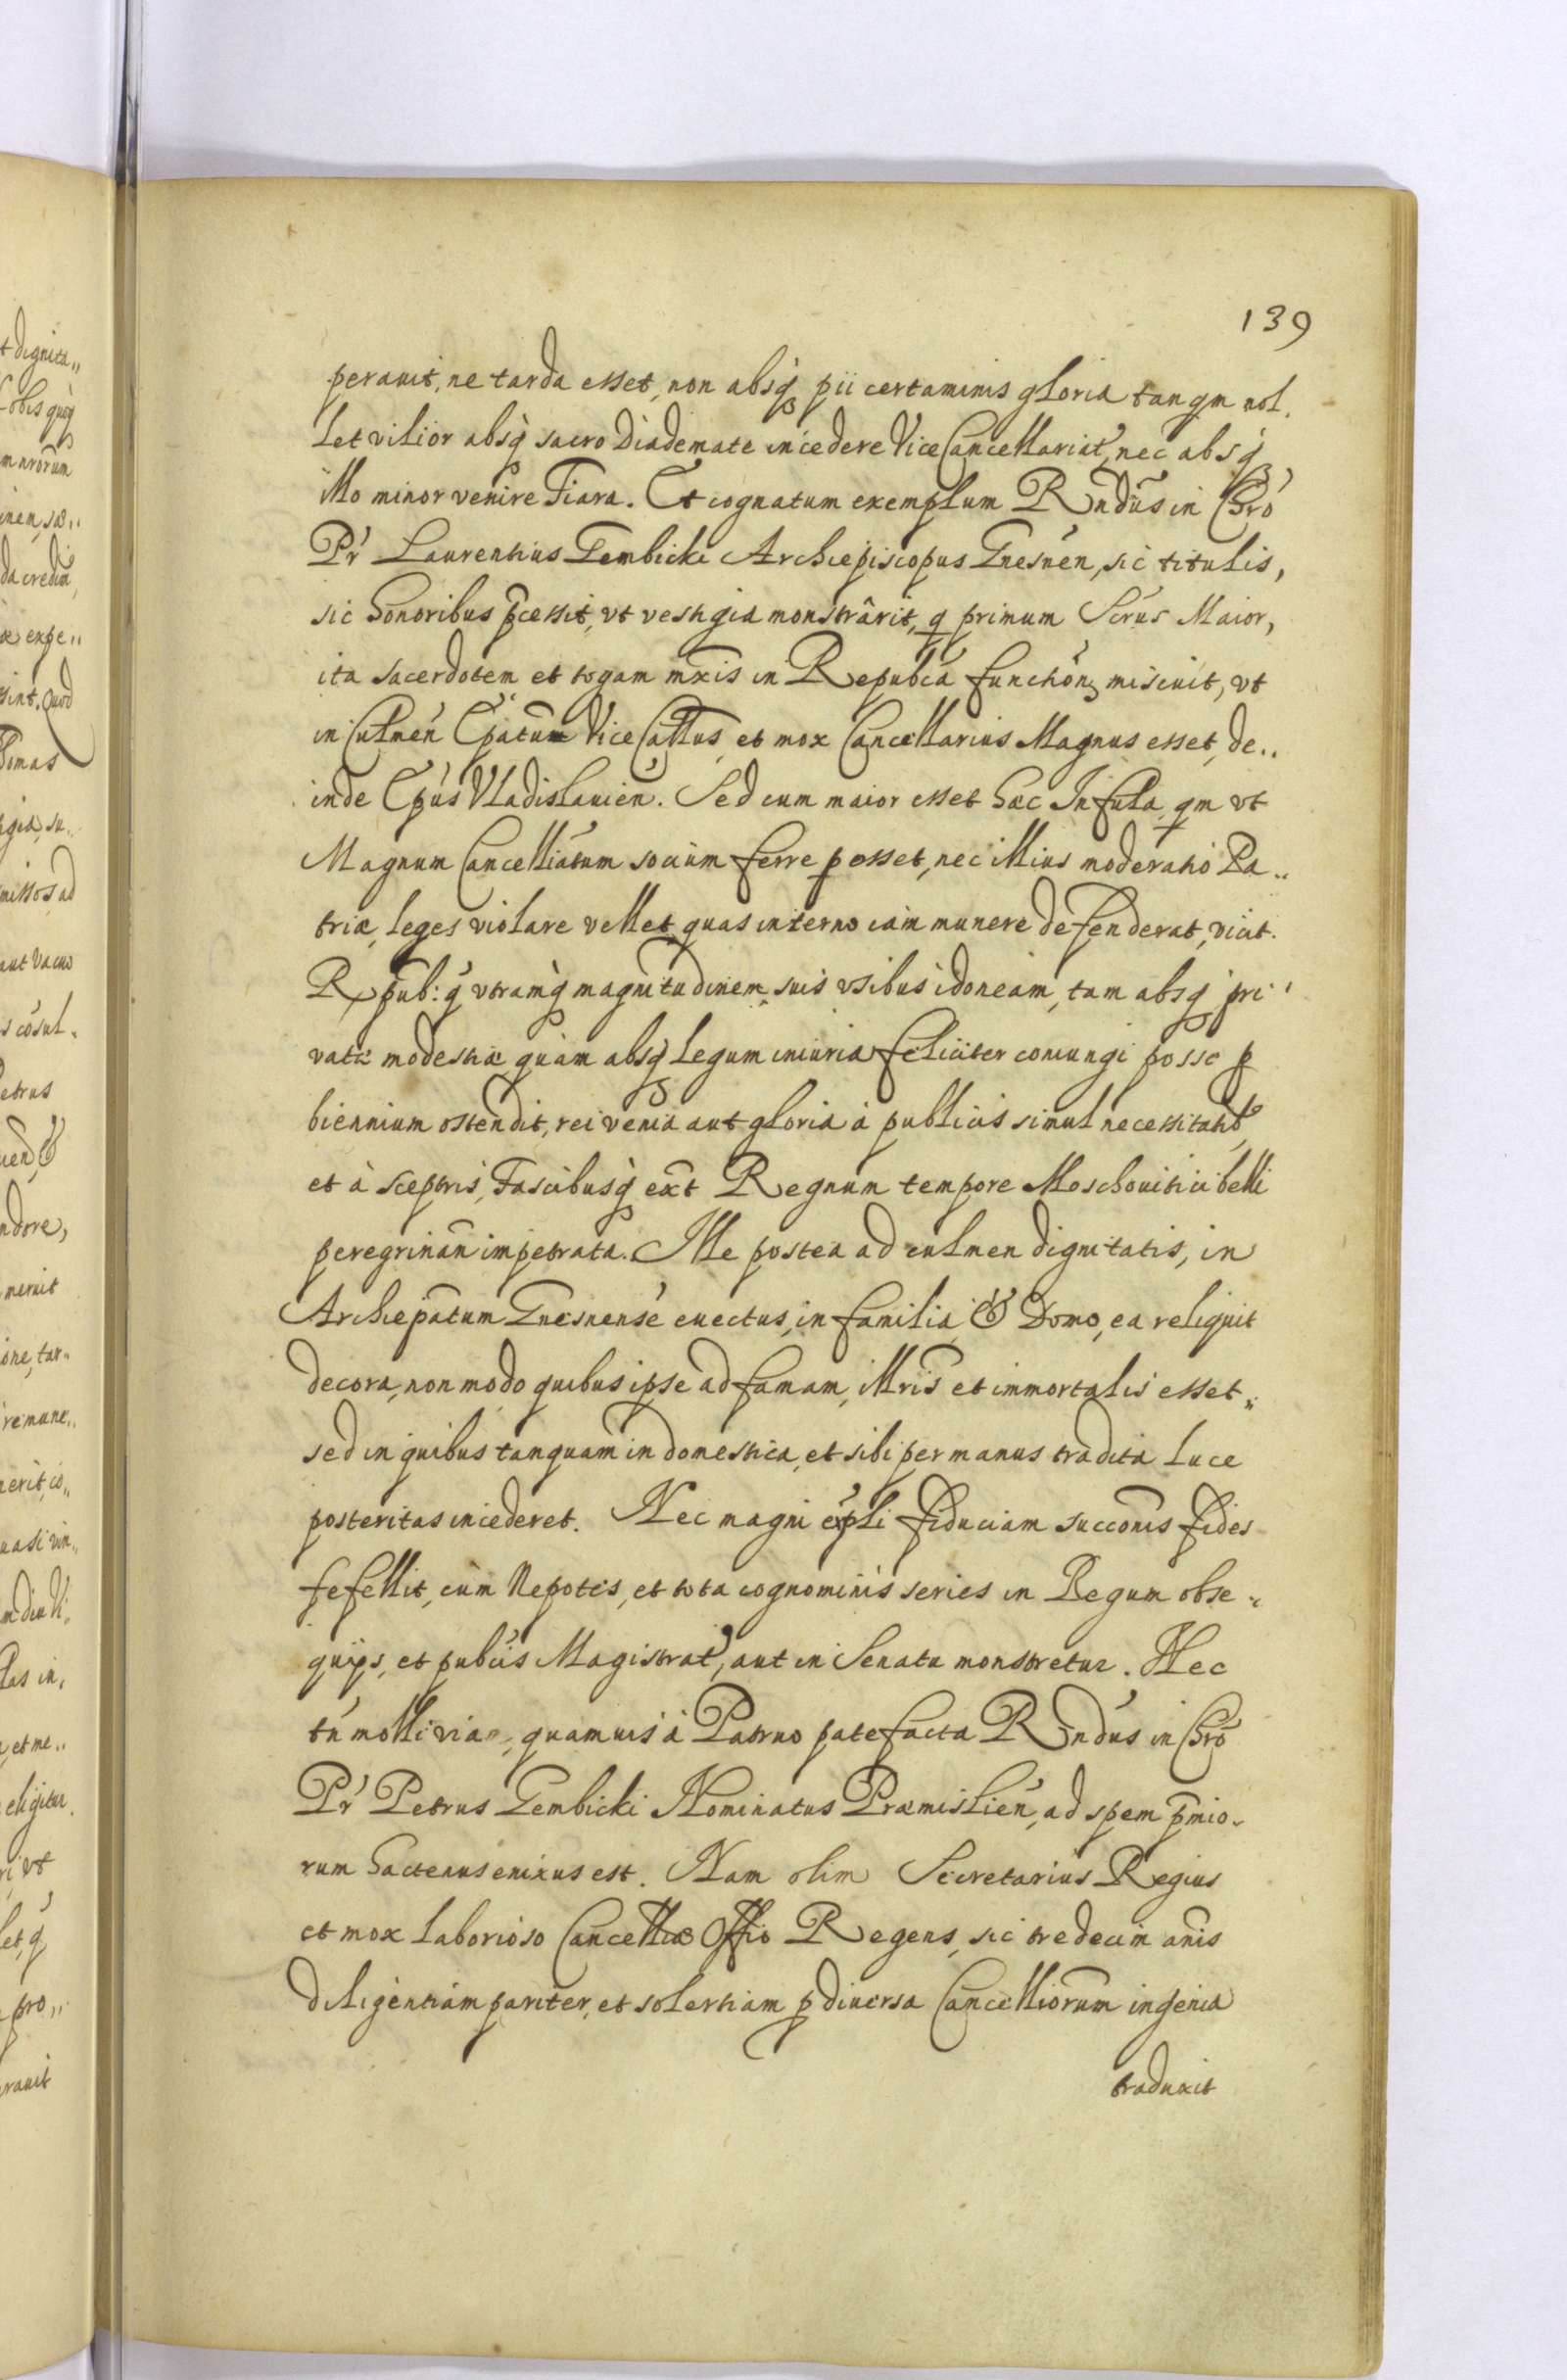 139
perauit, ne tarda esset, non absq́ pii certaminis gloria tanqm nol.
let vilior absq́ sacro Diademate incedere ViceCancellariat9, nec absq́
illo minor venire Tiara. Et cognatum exemplum Rndus in Chrō
Pr̄ Laurentius Gembicki Archiepiscopus Gnesnen, sic titulis,
sic honoribus p̄cessit, vt vestigia monstrârit, q primum Scrus Maior,
ita sacerdotem et togam mxis in Repubcá functiōn miscuit, vt
in Culmen Epatum ViceCallus, et mox Cancellarius Magnus esset, de..
inde Epus Vladislauien. Sed cum maior esset haec Infula, qm vt
Magnum Cancelliatum socium ferre posset, nec illius moderatio Pa..
triæ leges violare vellet, quas interno iam munere defenderat, vicit.
Rpub: q́ vtramq́ magnitudinem suis vsibus idoneam, tam absq́ pri
vatæ modestiæ quàm absq́ legum iniuria feliciter coniungi posse p
biennium ostendit, rei venia aut gloria à publicis simul necessitatib9,
et à sceptris, Fascibusq́ ext̄ Regnum tempore Moschouitici belli
peregrinan̄ impetrata. Ille postea ad culmen dignitatis, in
Archiepatum Gnesnense euectus, in familia & Domo, ea reliquit
decora, non modo quibus ipse ad famam, Illris et immortalis esset,
sed in quibus tanquam in domestica, et sibi per manus tradita luce
posteritas incederet. Nec magni expli fiduciam succonis fides
fefellit, cùm Nepotes, et tota cognominis series in Regum obse.
quijs, et pubcis Magistrat9, aut in Senatu monstretur. Nec
tn molli via, quamuis à Patruo patefacta Rndus in Chrō
Pr̄ Petrus Gembicki Nominatus Præmislien, ad spem p̄mio.
rum hactenus enixus est. Nam olim Secretarius Regius
et mox laborioso Cancelliæ Offio Regens, sic tredecim anis
diligentiam pariter, et solertiam p diuersa Cancelliorum ingenia
traduxit